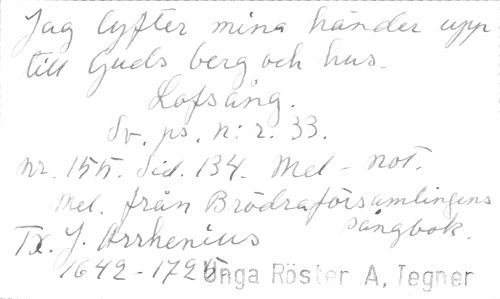 Jag lyfter mina händer upp
till Guds berg och hus.
Lofsång.
Sv. ps. n:r. 33.
nr. 155. Sid. 134. Mel - not.
Mel. från Brödraförsamlingens
sångbok.
Tx. J. Arrhenius
1642-1725
Unga Röster A. Tegner